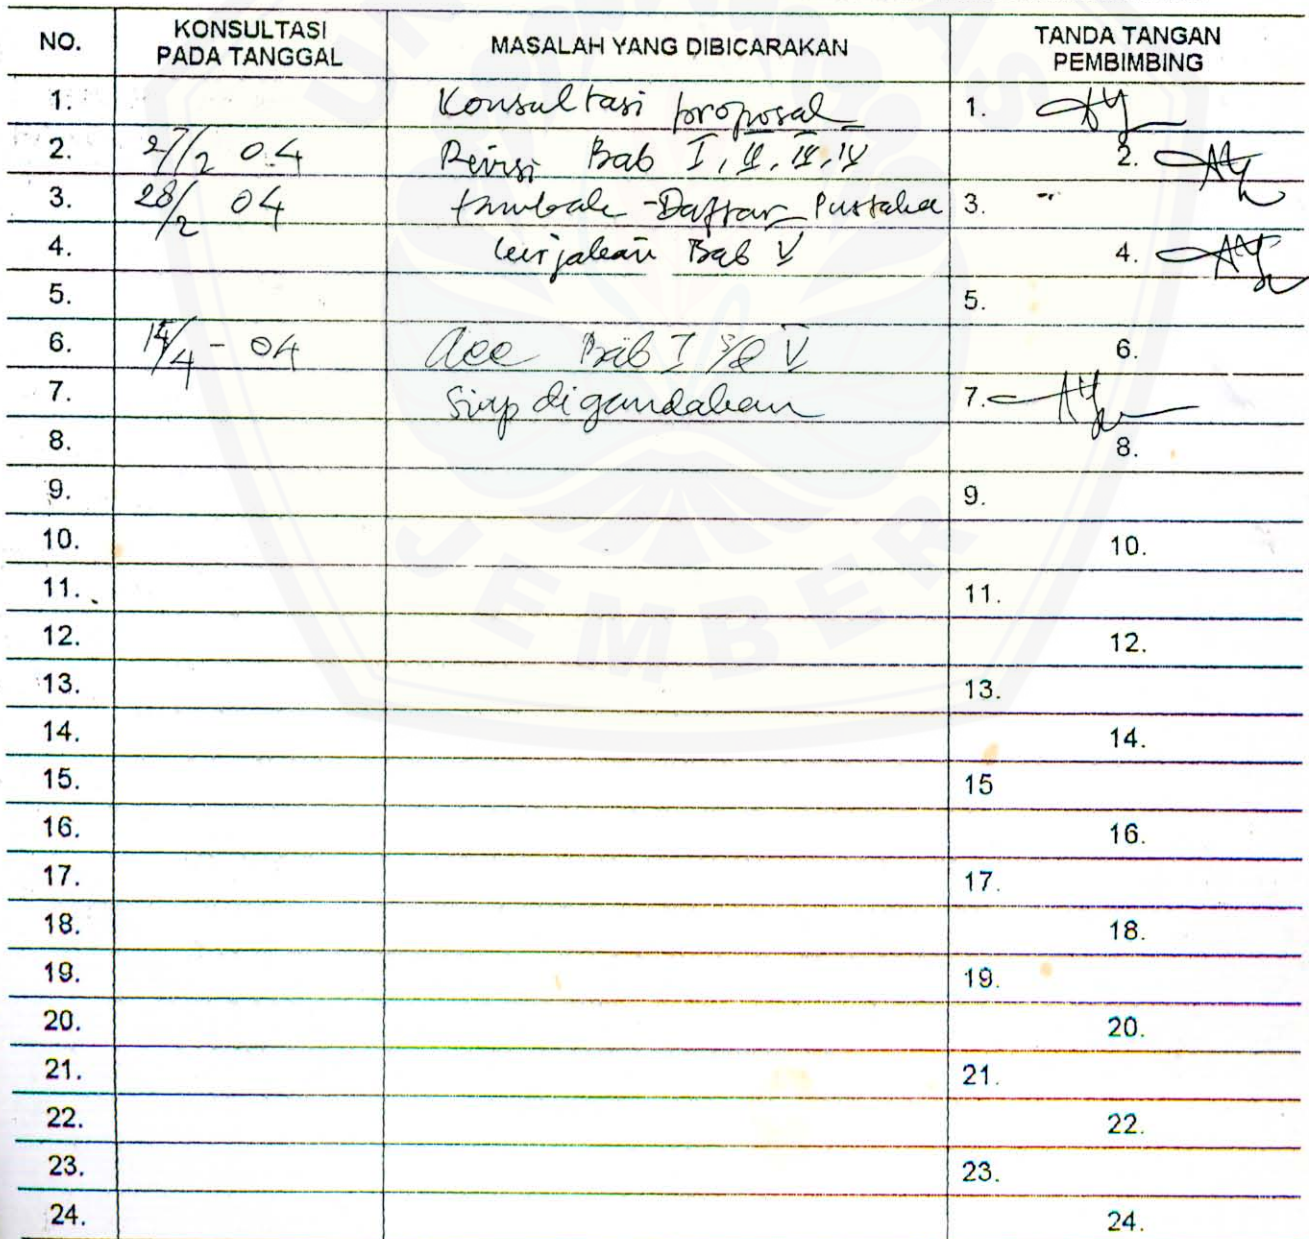 NO. KONSULTASI PADA TANGGAL MASALAH YANG DIBICARAKAN TANDA TANGAN PEMBIMBING
1. Konsultasi proposal 1.
2. 27/2 04 Revisi Bab I, II, III, IV 2.
3. 28/2 04 -Daftar Pustaka 3.
4. Bab V 4.
5. 5.
6. 14/4 - 04 acc Bab I s/d V 6.
7. Siap digandakan 7.
8. 8.
9. 9.
10. 10.
11. 11.
12. 12.
13. 13.
14. 14.
15. 15
16. 16.
17. 17.
18. 18.
19. 19.
20. 20.
21. 21.
22. 22.
23. 23.
24. 24.
JEMBER